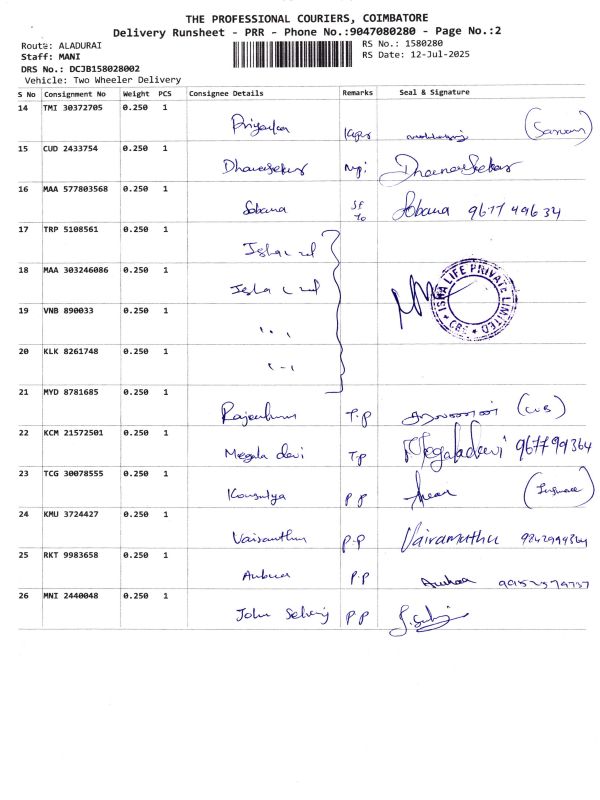 THE PROFESSIONAL COURIERS, COIMBATORE
Delivery Runsheet - PRR - Phone No.:9047080280 - Page No.:2
Route: ALADURAI
RS No.: 1580280
Staff: MANI
RS Date: 12-Jul-2025
DRS No.: DCJB158028002
Vehicle: Two Wheeler Delivery
S No Consignment No Weight PCS Consignee Details Remarks Seal & Signature
14 TMI 30372705 0.250 1
Priyanka
15 CUD 2433754 0.250 1
Dhanasekar Dhanasekar
16 MAA 577803568 0.250 1
Sobana Sobana
17 TRP 5108561 0.250 1
18 MAA 303246086 0.250 1
ISHA LIFE PRIVATE LIMITED
* CBE *
19 VNB 890033 0.250 1
20 KLK 8261748 0.250 1
21 MYD 8781685 0.250 1
T.P
22 KCM 21572501 0.250 1
Megala devi T.P Megaladevi
23 TCG 30078555 0.250 1
Kousalya P P
24 KMU 3724427 0.250 1
P.P Vairamuthu
25 RKT 9983658 0.250 1
P.P
26 MNI 2440048 0.250 1
John P P